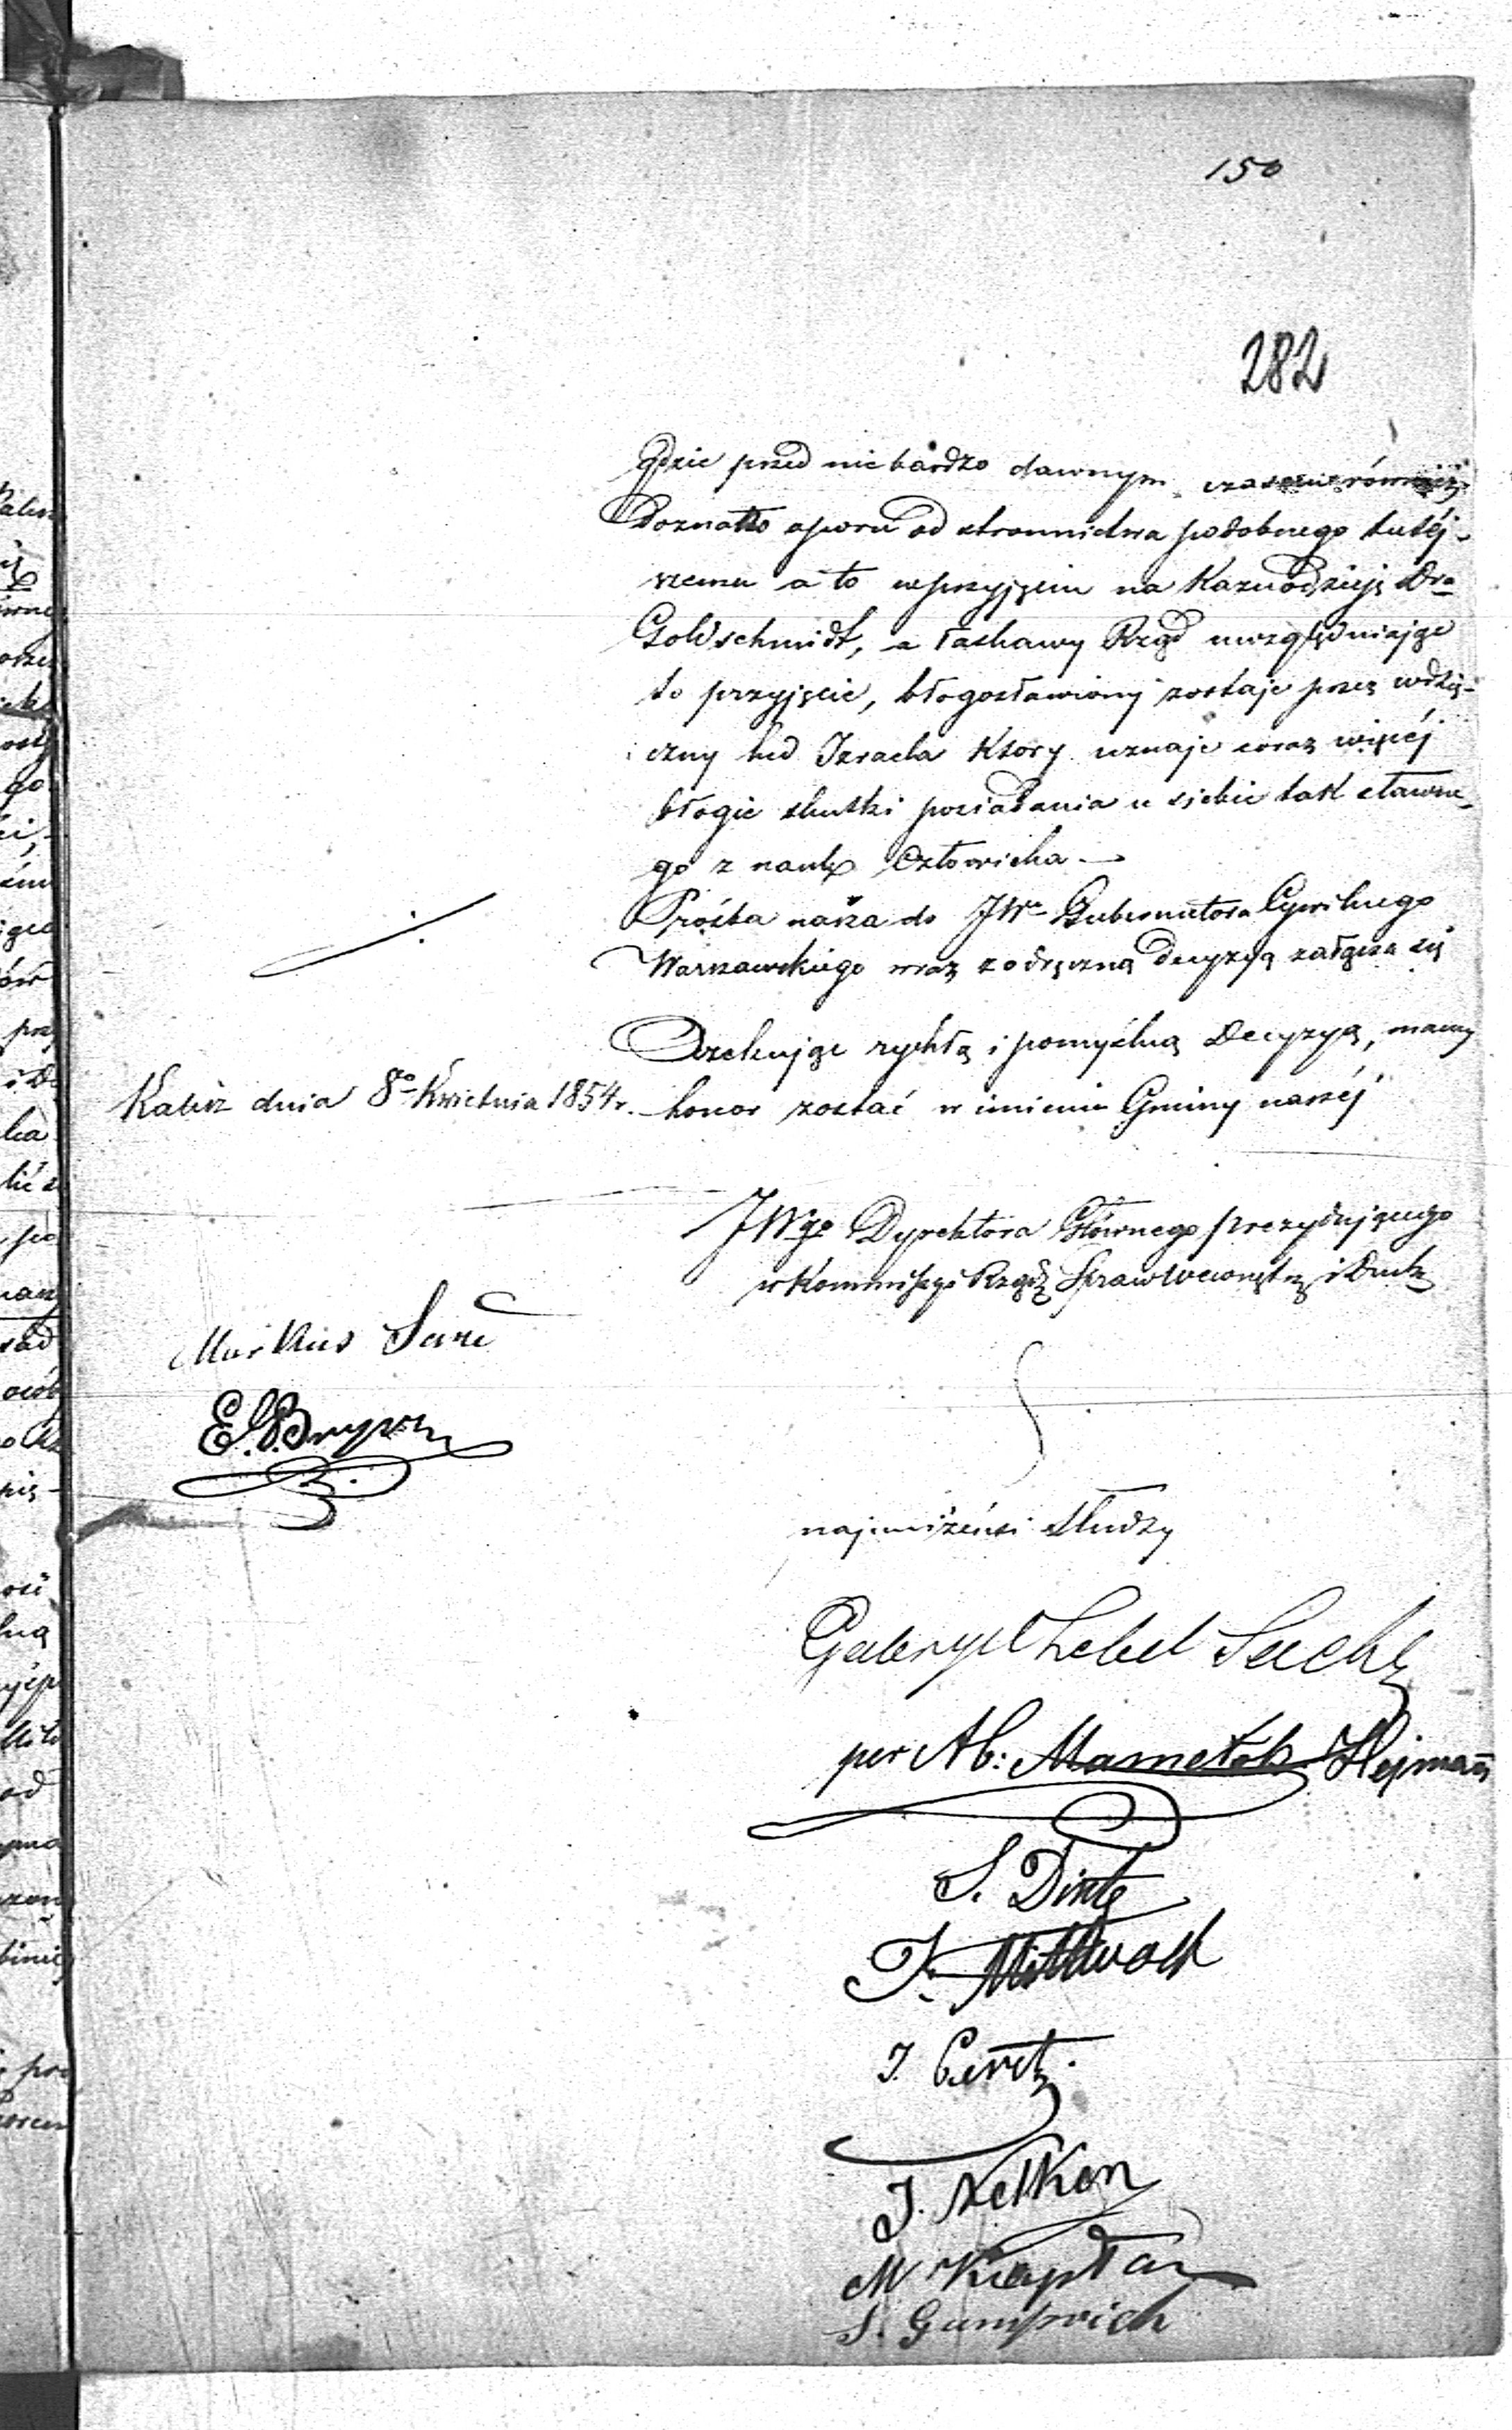 150
282
gdzie przed niebardzo dawnym czasem również
doznało oporu od stronnictwa podobnego tutéj-
szemu a to w przyjęciu na Kaznodzieję Dra
Goldschmidt, a łaskawy Rząd uwzględniając
to przyjęcie, błogosławiony zostaje przez wdzię-
czny lud Izraela Ktory uznaje coraz więcéj
błogie skutki posiadania u siebie tak sławne-
go z nauk Człowieka —
Prośba nasza do JWo Gubernatora Cywilnego
Warszawskiego wraz z odręczną decyzyą załącza się
Oczekując rychłą i pomyślną Decyzyą, mamy
Kalisz dnia 8o Kwietnia 1854 r.
honor zostać w imieniu Gminy naszéj
JWgo Dyrektora Głównego prezydującego
w Kommissyi Rządz Spraw Wewnętrz i Duch
Markus
E. S.
najuniżeńsi Słudzy
Gabryel Lebel Sachs
per Ab: Mamelok Hejman
S.
J. Mittwoch
J. Peretz.
J. Nelken
M Kapłan
S. Gumpricht